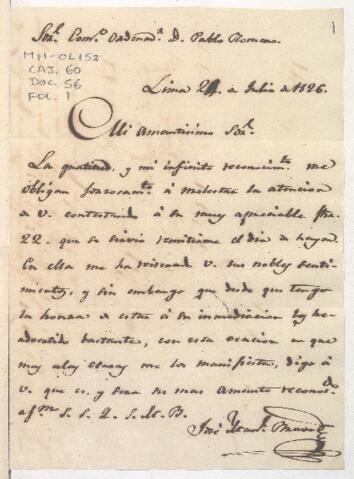 1
Sor. Com.o Ordenad.r D. Pablo Romero.
MH-OL152
CAJ. 60
DOC. 56
FOL. 1
Lima 24 a Julio a 1826.
Mi amantisimo Sor.
La gratitud, y mi infinito reconocim.to me
obligan forzosam.te á molestar la atencion
a V. contestand á su muy apreciable fha.
22. que se sirvio remitirme el dia a
En ella me ha V. sus nobles senti-
mientos, y sin embargo que desde que tengo
la honra a estar á su inmediacion los he
advertido bastante, con esta ocacion en que
muy me los manifiesta, digo á
V. que es, y sera su mas amante reconoc.do
af.mo S. S. Q. S. M. B.
José